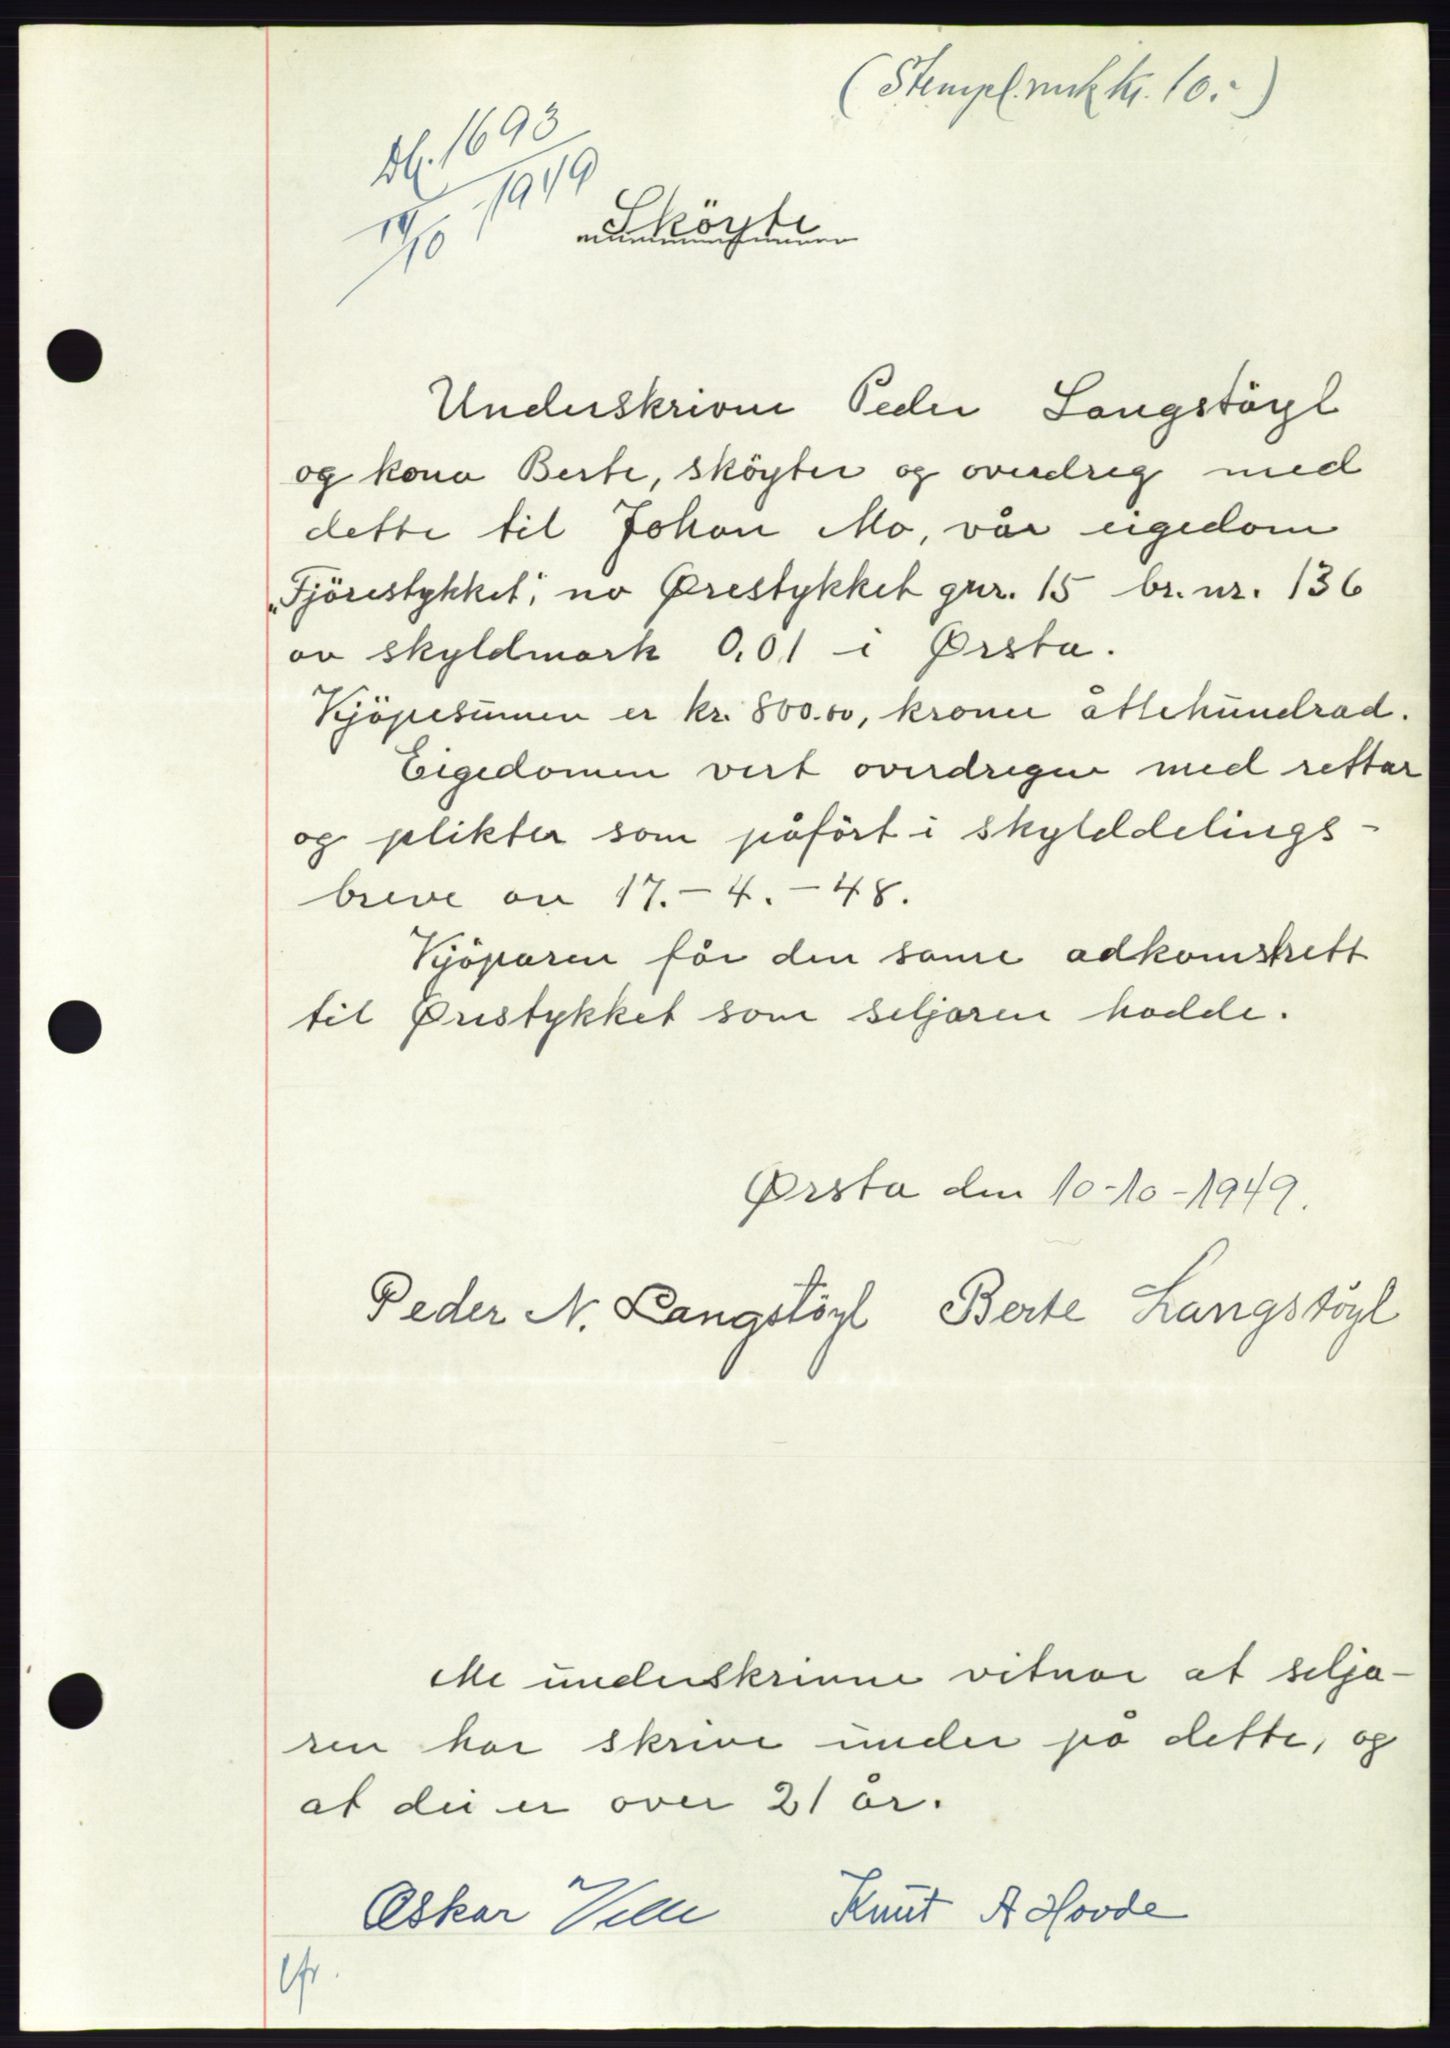 (Stempl.merk kr. 10.-)
Db. 1693
14/10 1949
Sköyte
Underskrivne Peder Langstöyl
og kona Berte, sköyter og overdreg med
dette til Johan Mo, vår eigedom
„Fjörestykket", no Ørestykket gnr. 15 br.nr. 136
av skyldmark 0,01 i Ørsta.
Kjöpesumen er kr. 800.00, kroner åttehundrad.
Eigedomen vert overdregen med rettar
og plikter som påfört i skylddelings-
breve av 17.-4.-48.
Kjöparen får den same adkomstrett
til Ørestykket som seljaren hadde.
Ørsta den 10-10-1949.
Peder N. Langstöyl Berte Langstöyl
Me underskrivne vitnar at selja-
ren har skrive under på dette, og
at dei er over 21 år.
Oskar Velle Knut A Hovde